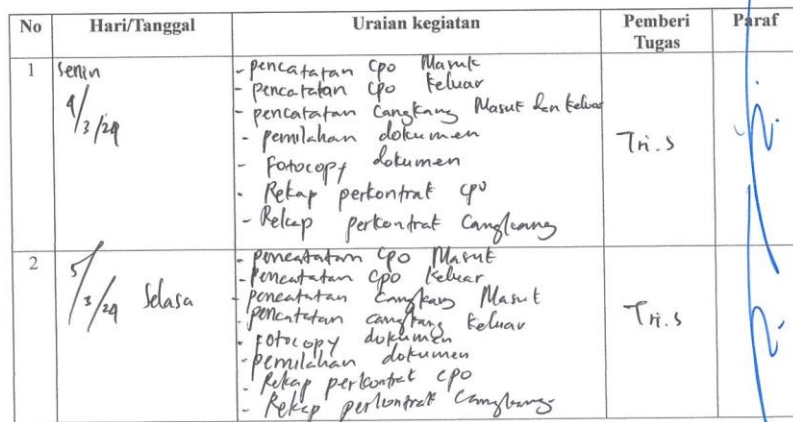 No Hari/Tanggal Uraian kegiatan Pemberi Tugas Paraf
1 Senin 4/3/24
- pencatatan Cpo Masuk
- pencatatan Cpo keluar
- pencatatan Cangkang Masuk dan keluar
- pemilahan dokumen
- Fotocopy dokumen
- Rekap perkontrak cpo
- Rekap perkontrak Cangkang
Tri.S
2 5/3/24 Selasa
- pencatatan Cpo Masuk
- Pencatatan Cpo keluar
- pencatatan Cangkang Masuk
- pencatatan cangkang keluar
- Fotocopy dokumen
- pemilahan dokumen
- Rekap perkontrak cpo
- Rekap perkontrak Cangkang
Tri.S